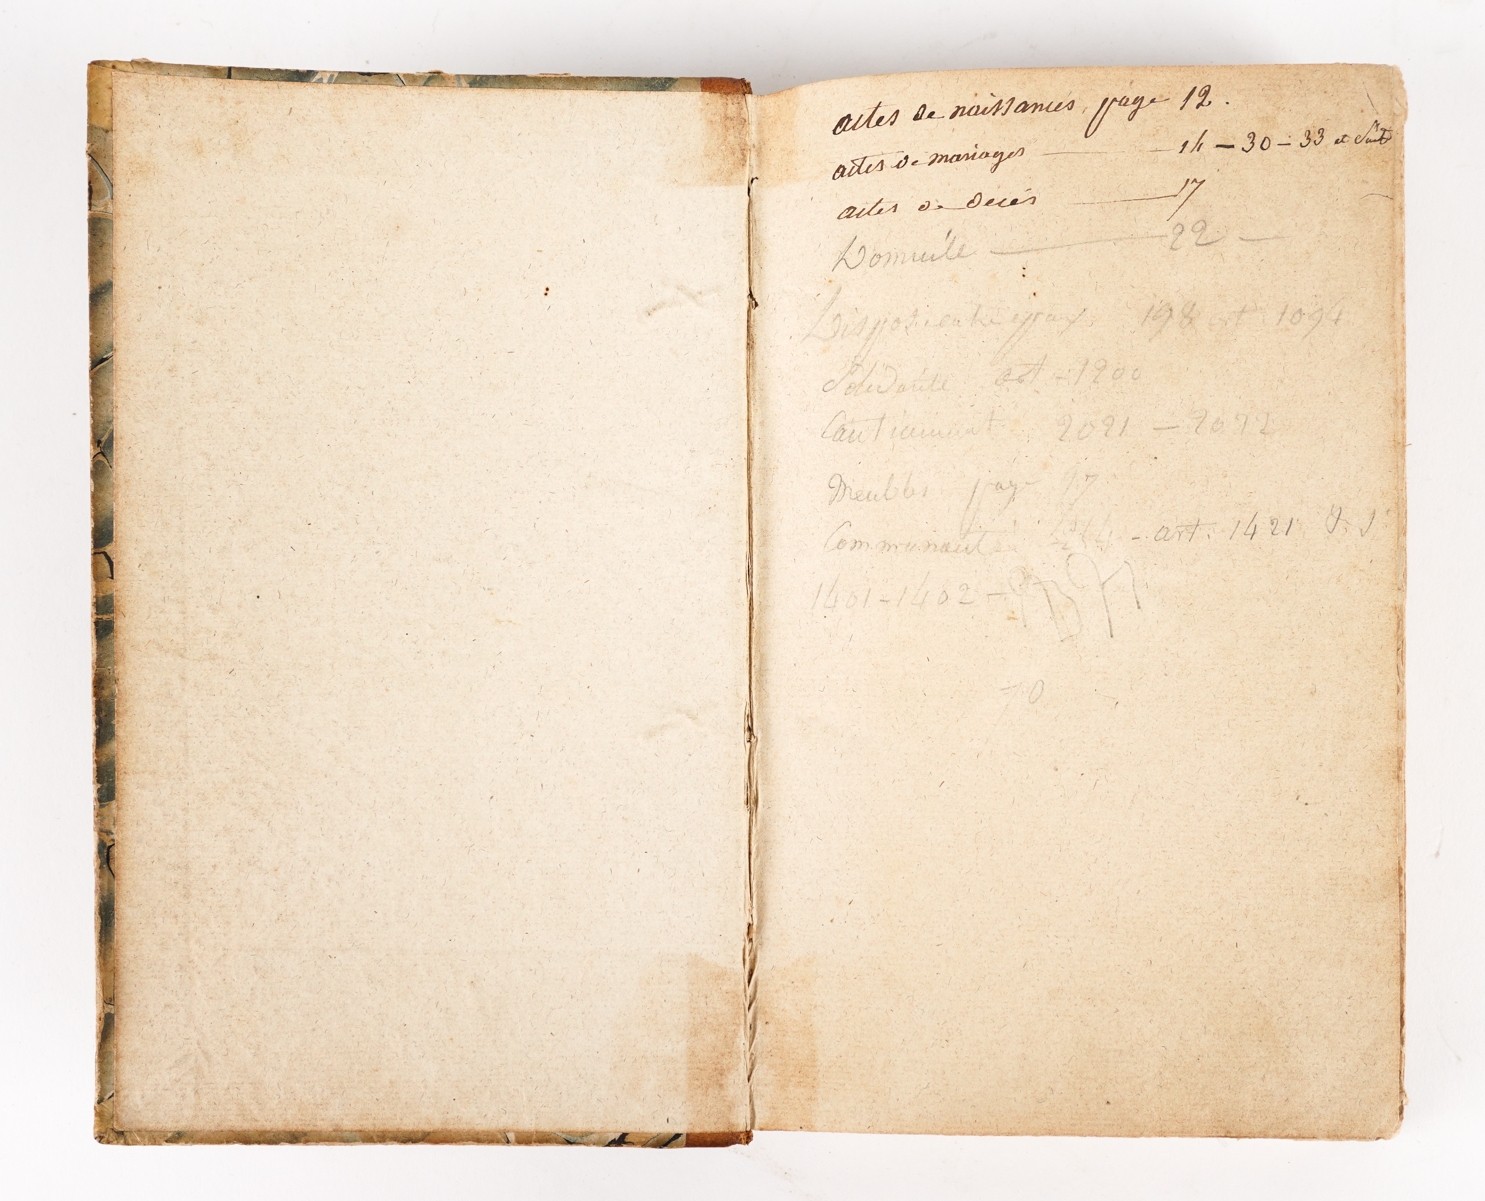 actes de naissances page 12.
actes de mariages — 14 – 30 – 33 et suite
actes de deces — 17
Domicile — 22 —
Disposi entre epoux 198 art 1094
Solidarité art - 1200
Cautionnement 2021 —
Meubles page 97
Communauté - art. 1421
1401 - 1402 -
70